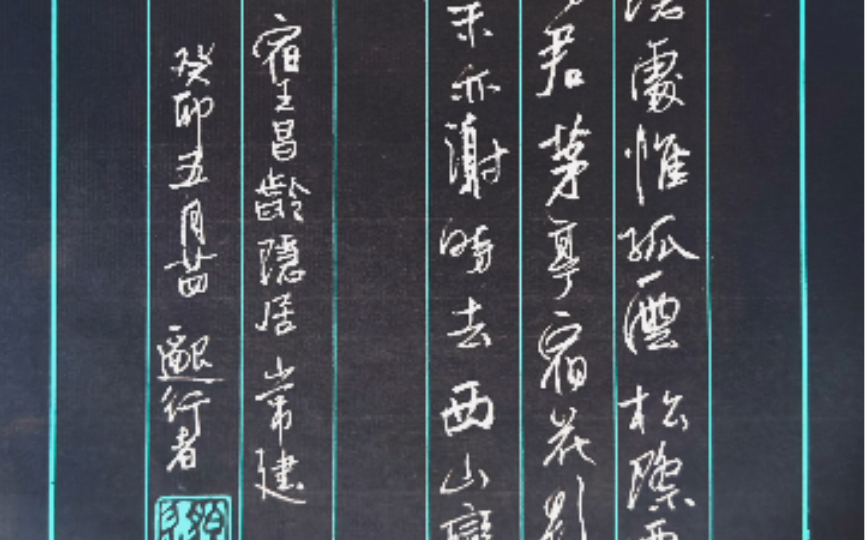 處惟孤雲松際
君茅亭宿花影
亦謝時去西山
宿王昌齡隱居 常建
癸卯五月廿四 行者